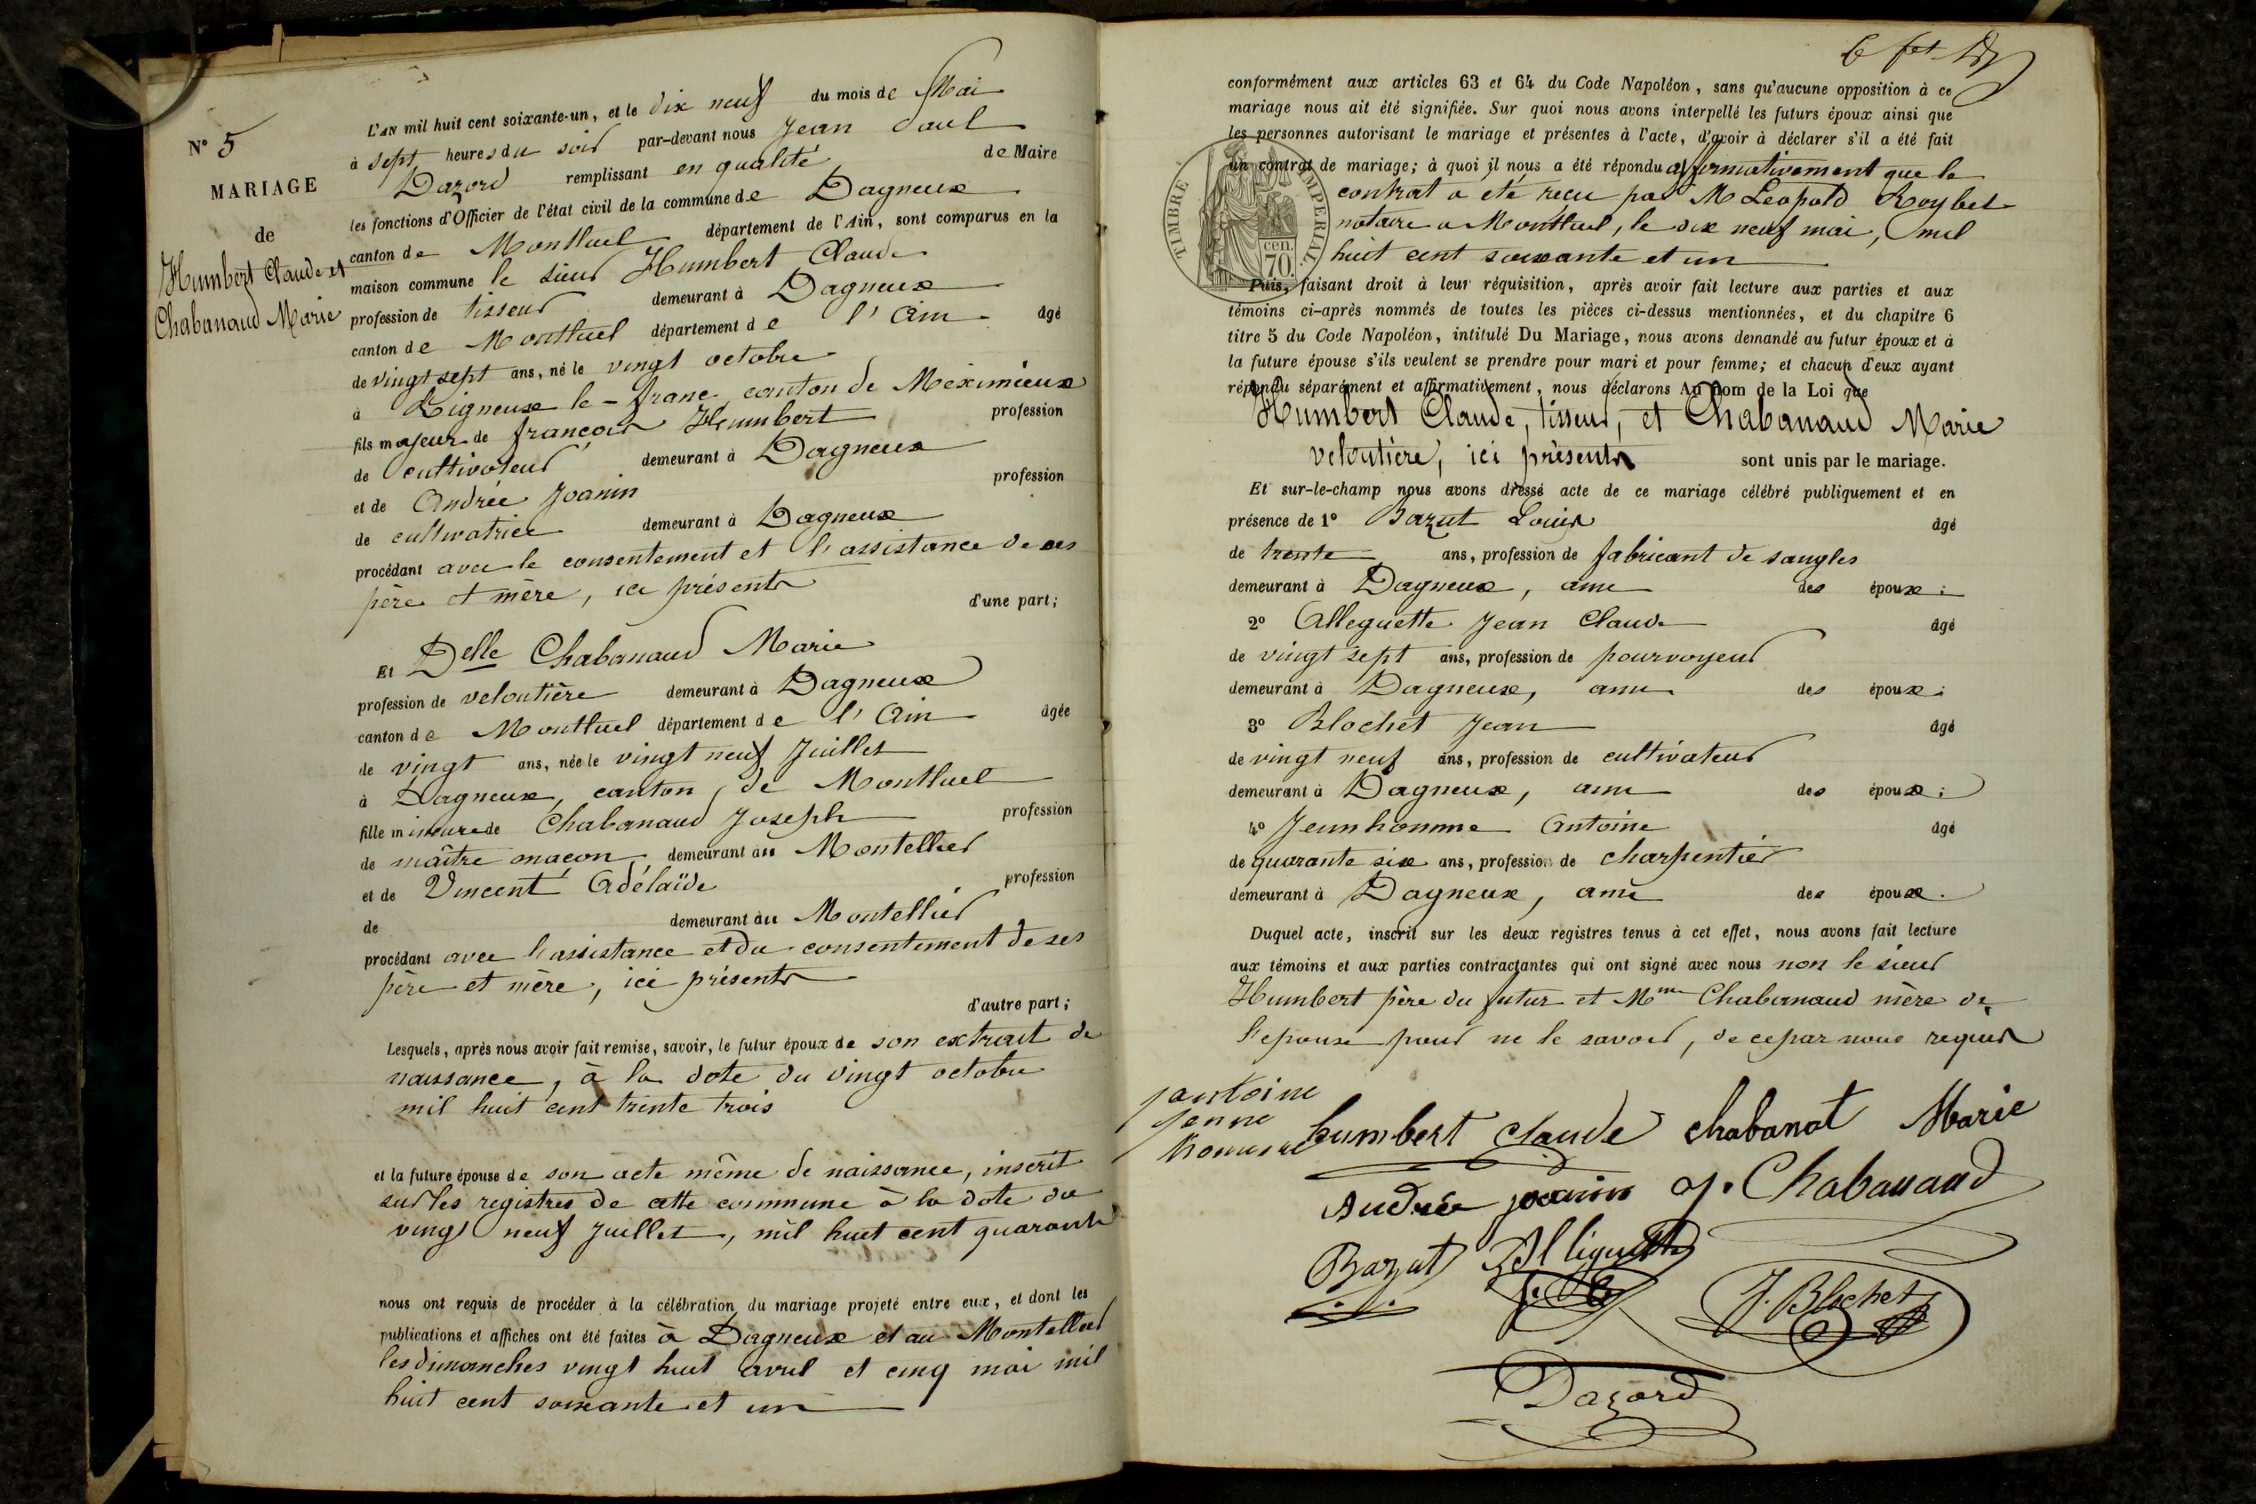 N° 5
MARIAGE
de
Humbert Claude et
Chabanaud Marie
L'AN mil huit cent soixante-un, et le dix neuf du mois de Mai
à sept heures du soir par-devant nous Jean Paul
Dazord remplissant en qualité de Maire
les fonctions d'Officier de l'état civil de la commune de Dagneux
canton de Montluel département de l'Ain, sont comparus en la
maison commune le sieur Humbert Claude
profession de tisseur demeurant à Dagneux
canton de Montluel département de l'Ain âgé
de vingt sept ans, né le vingt octobre
à Rigneux le-franc, canton de Meximieux
fils majeur de françois Humbert profession
de cultivateur demeurant à Dagneux
et de Andrée Joanin profession
de cultivatrice demeurant à Dagneux
procédant avec le consentement et l'assistance de ses
père et mère, ici présents
d'une part;
Et Delle Chabanaud Marie
profession de veloutière demeurant à Dagneux
canton de Montluel département de l'Ain âgée
de vingt ans, née le vingt neuf Juillet
à Dagneux, canton de Montluel
fille mineure de Chabanaud Joseph profession
de maître maçon, demeurant au Montellier
et de Vincent Adélaïde profession
de demeurant au Montellier
procédant avec l'assistance et du consentement de ses
père et mère, ici présents
d'autre part;
Lesquels, après nous avoir fait remise, savoir, le futur époux de son extrait de
naissance, à la date du vingt octobre
mil huit cent trente trois
et la future épouse de son acte même de naissance, inscrit
sur les registres de cette commune à la date du
vingt neuf Juillet, mil huit cent quarante
nous ont requis de procéder à la célébration du mariage projeté entre eux, et dont les
publications et affiches ont été faites à Dagneux et au Montellier
les dimanches vingt huit avril et cinq mai mil
huit cent soixante et un
conformément aux articles 63 et 64 du Code Napoléon, sans qu'aucune opposition à ce
mariage nous ait été signifiée. Sur quoi nous avons interpellé les futurs époux ainsi que
les personnes autorisant le mariage et présentes à l'acte, d'avoir à déclarer s'il a été fait
un contrat de mariage; à quoi il nous a été répondu affirmativement que le
contrat a été reçu par M Léopold Roybet
notaire a Montluel, le dix neuf mai, mil
huit cent soixante et un
TIMBRE IMPERIAL
cen.
70.
Puis, faisant droit à leur réquisition, après avoir fait lecture aux parties et aux
témoins ci-après nommés de toutes les pièces ci-dessus mentionnées, et du chapitre 6
titre 5 du Code Napoléon, intitulé Du Mariage, nous avons demandé au futur époux et à
la future épouse s'ils veulent se prendre pour mari et pour femme; et chacun d'eux ayant
répondu séparément et affirmativement, nous déclarons Au nom de la Loi que
Humbert Claude, tisseur, et Chabanaud Marie
veloutière, ici présents sont unis par le mariage.
Et sur-le-champ nous avons dressé acte de ce mariage célébré publiquement et en
présence de 1° Bazut Louis âgé
de trente ans, profession de fabricant de sangles
demeurant à Dagneux, ami des époux;
2° Alleguette Jean Claude âgé
de vingt sept ans, profession de pourvoyeur
demeurant à Dagneux, ami des époux;
3° Blochet Jean âgé
de vingt neuf ans, profession de cultivateur
demeurant à Dagneux, ami des époux;
4° Jeunhomme Antoine âgé
de quarante six ans, profession de charpentier
demeurant à Dagneux, ami des époux.
Duquel acte, inscrit sur les deux registres tenus à cet effet, nous avons fait lecture
aux témoins et aux parties contractantes qui ont signé avec nous non le sieur
Humbert père du futur et Mme Chabanaud mère de
l'epouse pour ne le savoir, de ce par nous requis
antoine
jenne
homme
humbert Claude chabanat Marie
Andrée joanin J. Chabanaud
Bazut Alliguette
J. Blochet
Dazord